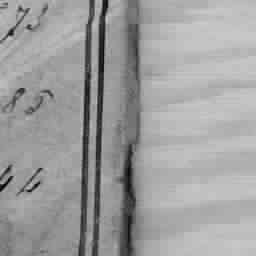 73
85
44